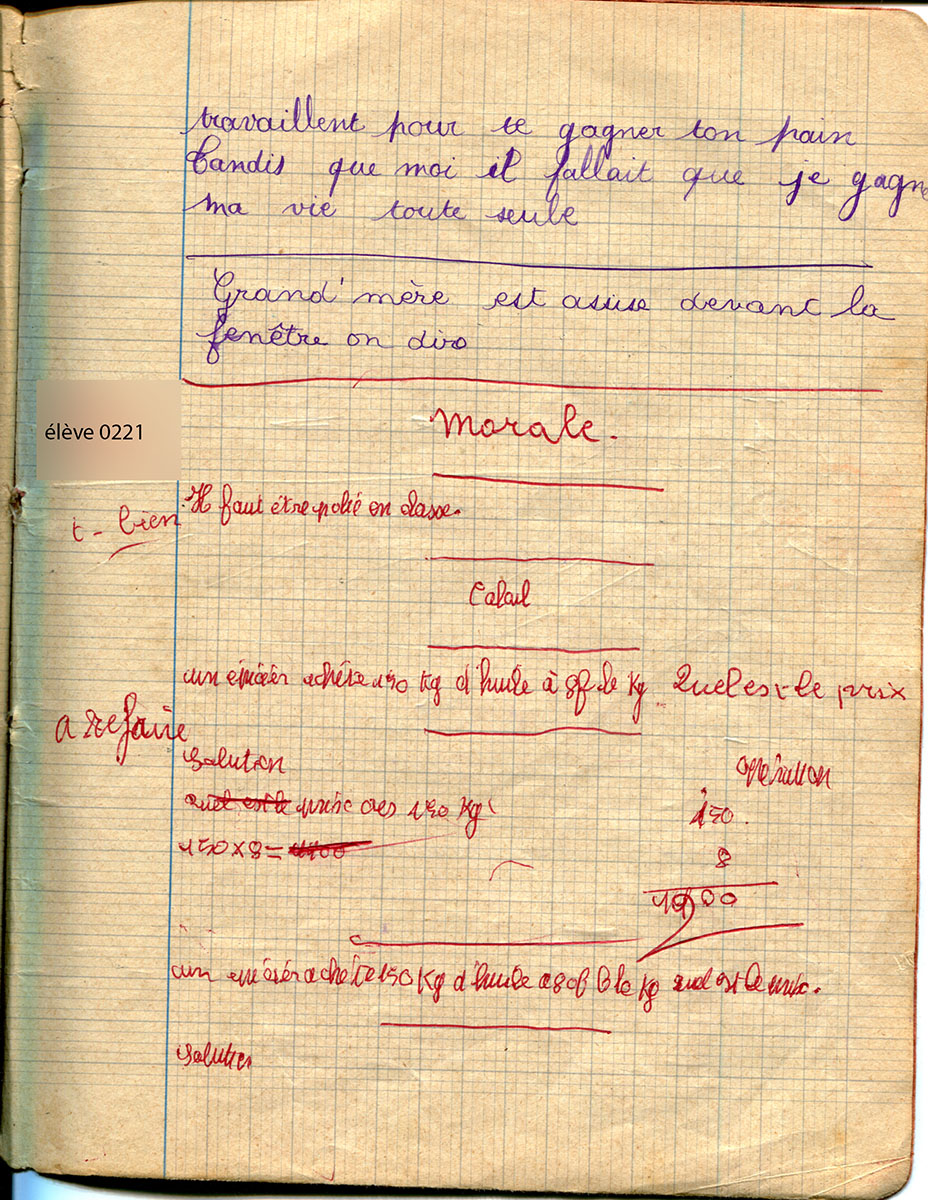 travaillent pour te gagner ton pain
tandis que moi il fallait que je gagne
ma vie toute seule
Grand'mère est assise devant la
fenêtre on diro
élève 0221
Morale.
t - bien
Il faut être polié en classe.
Calcul
un épicier achète 150 kg d'huile à 8f le kg Quel est le prix
a refaire
Solution
opération
quel est le prix des 150 kg
150
150 x 8 =
8
un épicier achète 150 Kg d'huile a 80f le kg quel est le prix.
Solution